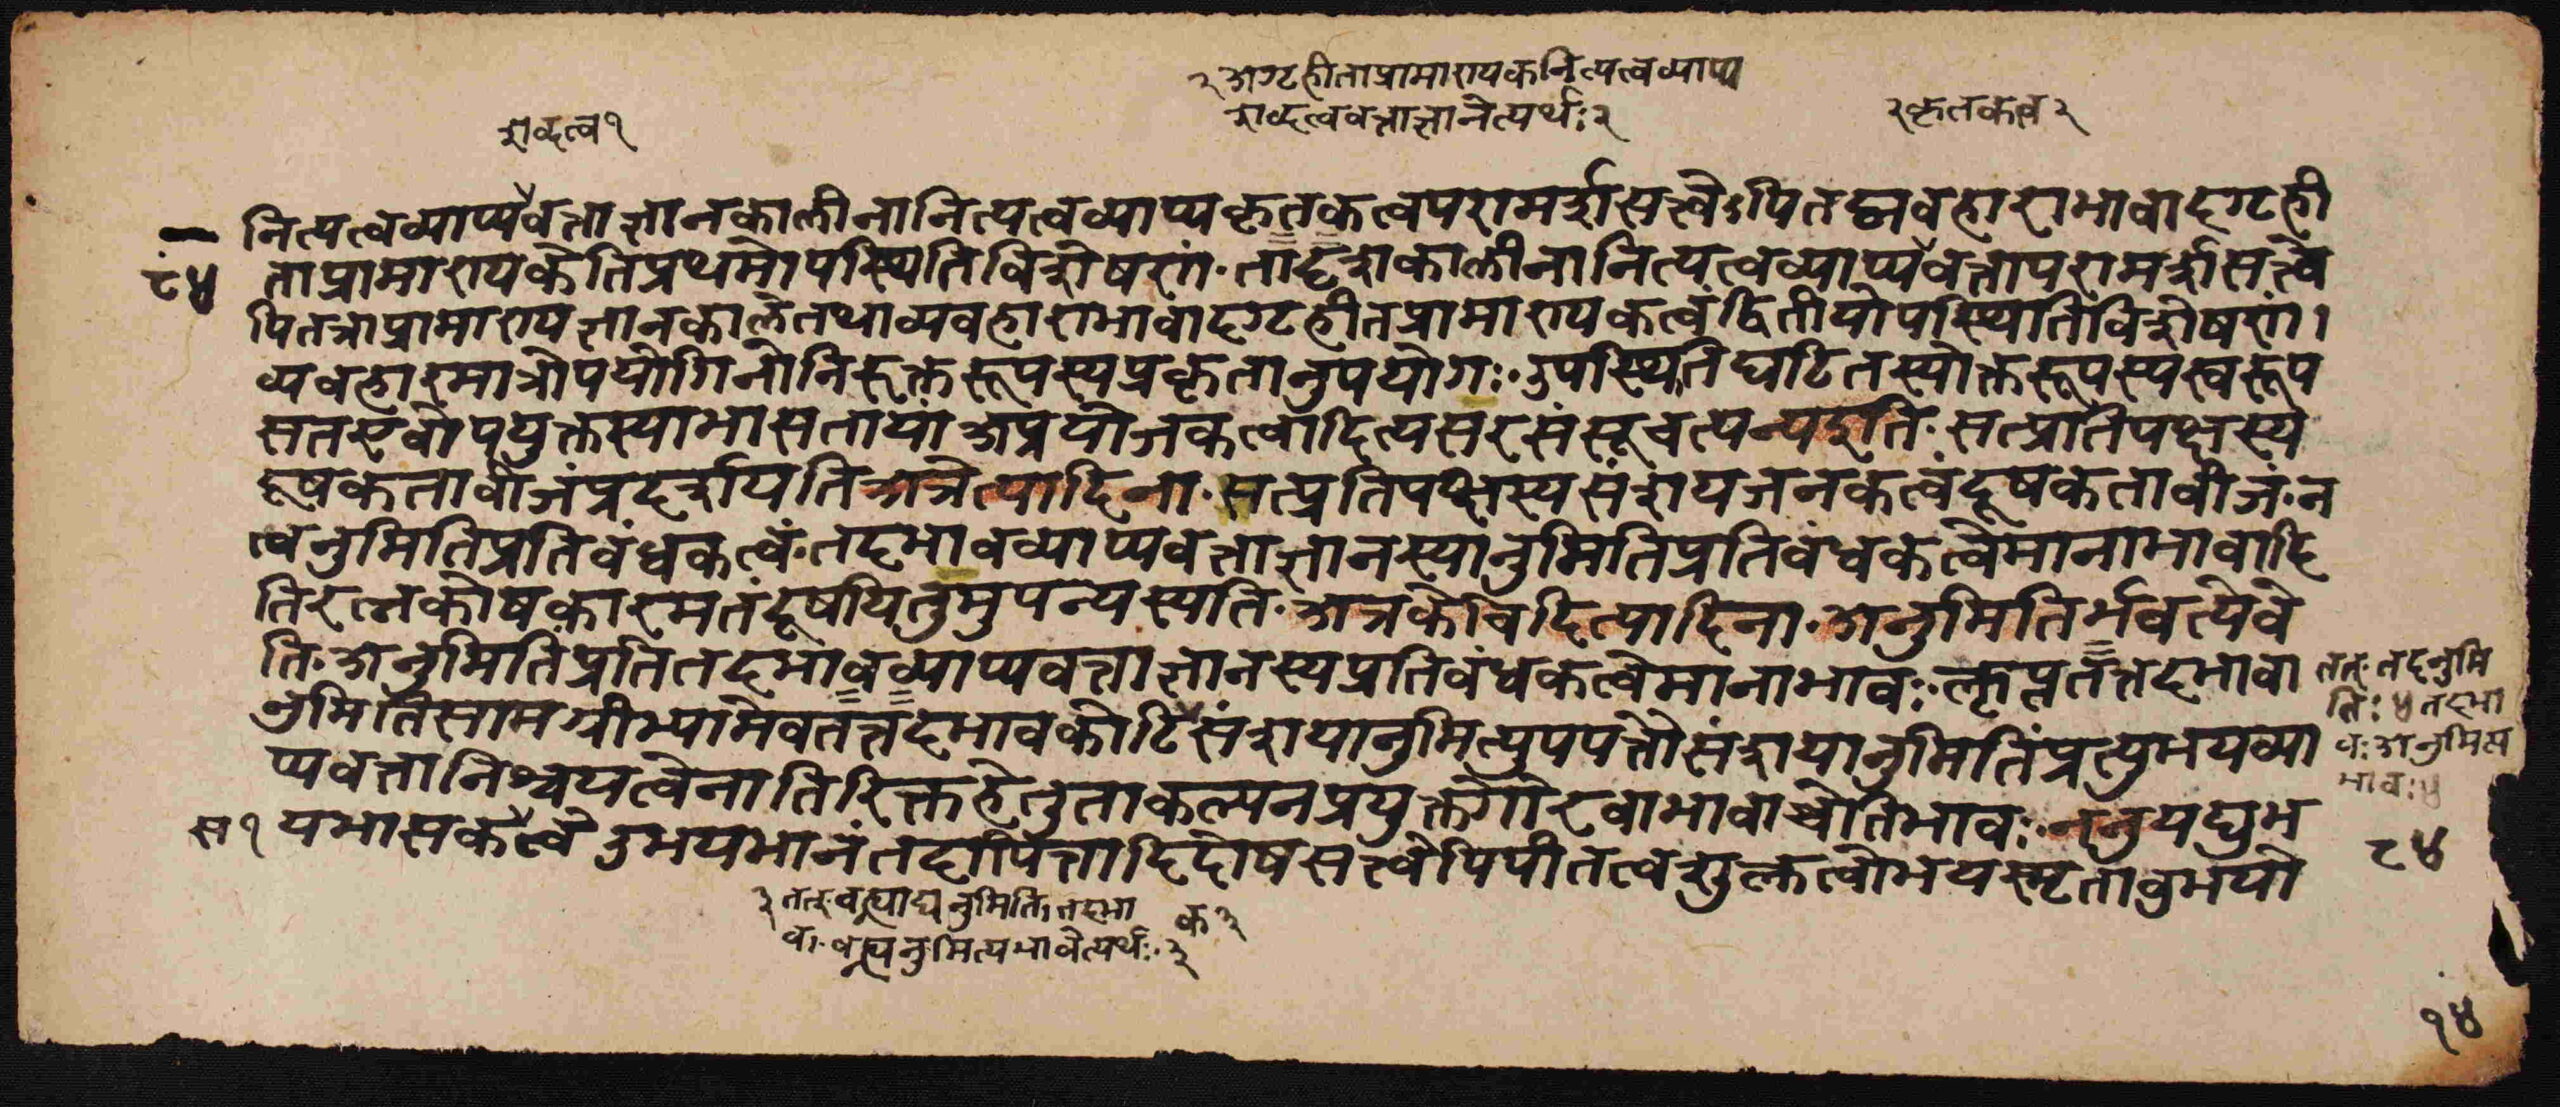 २ अगृहीताप्रामाण्यकनित्यत्वव्याप्य
शब्दत्ववत्ताज्ञानेत्यर्थः २
शब्दत्व १
२ कृतकत्व २
नित्यत्वव्याप्यवत्ताज्ञानकालीनानित्यत्वव्याप्यकृतकत्वपरामर्शसत्त्वेऽपितद्व्यवहाराभावादगृही
ताप्रामाण्यकेतिप्रथमोपस्थितिविशेषणं॰तादृशकालीनानित्यत्वव्याप्यवत्तापरामर्शसत्त्वे
८४
पितत्राप्रामाण्यज्ञानकालेतथाव्यवहाराभावादगृहीतप्रामाण्यकत्वंद्वितीयोपस्थितिविशेषणं।
व्यवहारमात्रोपयोगिनोनिरुक्तरूपस्यप्रकृतानुपयोगः॰उपस्थितिघटितस्योक्तरूपस्यस्वरूप
सतएवोपयुक्तस्याभासतायांअप्रयोजकत्वादित्यसरसंसूचत्यन्यइति॰सत्प्रतिपक्षस्य
दूषकतावीजंप्रदर्शयतिअत्रेत्यादिना॰सत्प्रतिपक्षस्यसंशयजनकत्वंदूषकतावीजं॰न
त्वनुमितिप्रतिवंधकत्वं॰तदभावव्याप्यवत्ताज्ञानस्यानुमितिप्रतिवंधकत्वेमानाभावादि
तिरत्नकोषकारमतंदूषयितुमुपन्यस्यति॰अत्रकेचिदित्यादिना॰अनुमितिर्भवत्येवे
ति॰अनुमितिप्रतितदभावव्याप्यवत्ताज्ञानस्यप्रतिवंधकत्वेमानाभावः॰कॢप्ततत्तदभावा
नुमितिसामग्रीभ्यामेवतत्तदभावकोटिसंशयानुमित्युपपत्तौसंशयानुमितिंप्रत्युभयव्या
प्यवत्तानिश्चयत्वेनातिरिक्तहेतुताकल्पनप्रयुक्तगौरवाभावाच्चेतिभावः॰ननुयद्युभ
यभासकत्वेउभयभानंतदापित्तादिदोषसत्त्वेपिपीतत्वशुक्लत्वोभयस्मृतावुभयो
स १
तत्॰तदनुमि
तिः ४ तदभा
वः अनुमित्य
भावः ४
८४
३ तत्॰वह्न्याद्यनुमिति॰तदभा
वा॰वह्न्यनुमित्यभावेत्यर्थः॰ ३
क ३
१४